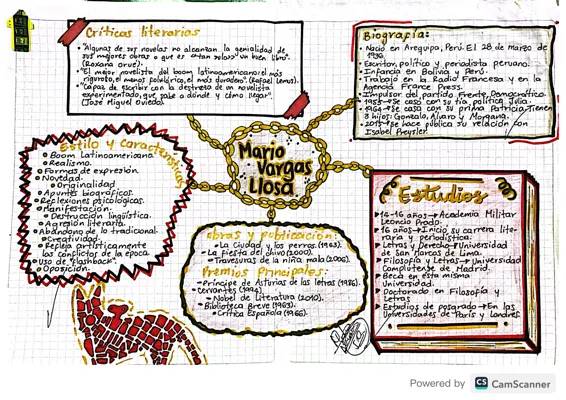 Críticas literarias
"Algunas de sus novelas no alcanzan la genialidad de
sus mejores obras o que es «tan solo» "un buen libro".
(Roxana Orué).
"El mejor novelista del boom latinoamericano: el más
riguroso, el menos politólogo, el más duradero". (Rafael Lemus).
"Capaz de escribir con la destreza de un novelista
experimentado, que sabe a dónde y cómo llegar".
(José Miguel Oviedo).
Biografía:
Nació en Arequipa, Perú. El 28 de marzo de
1936.
Escritor, político y periodista peruano.
Infancia en Bolivia y Perú.
Trabajó en la Radio Francesa y en la
Agencia France Press.
Impulsor del partido Frente Democrático
1955→ Se casó con su tía política Julia.
1964→ Se casó con su prima Patricia. Tienen
3 hijos: Gonzalo, Álvaro y Morgana.
2015→ Se hace pública su relación con
Isabel Preysler.
Mario
Vargas
Llosa
Estilo y Características
Boom Latinoamericano.
Realismo.
Formas de expresión.
Novedad.
Originalidad
Apuntes biográficos.
Reflexiones psicológicas.
Manifestación.
Destrucción lingüística.
Agresión literaria.
Abandono de lo tradicional.
Creatividad.
Refleja artísticamente
los conflictos de la época
Uso de "flashback".
Oposición.
Obras y publicación:
La Ciudad y los perros (1963).
La fiesta del chivo (2000).
Travesuras de la niña mala (2006).
Premios Principales:
Príncipe de Asturias de las letras (1986).
Cervantes (1994)
Nobel de Literatura (2010).
Biblioteca Breve (1963).
Crítica Española (1966).
Estudios
14-16 años→ Academia Militar
Leoncio Prado.
16 años→ Inicio su carrera lite-
raria y periodística.
Letras y Derecho→ Universidad
de San Marcos de Lima.
Filosofía y Letras→ Universidad
Complutense de Madrid.
Beca en esta misma
Universidad.
Doctorado en Filosofía y
Letras
Estudios de posgrado→ En las
Universidades de París y Londres
Powered by CS CamScanner